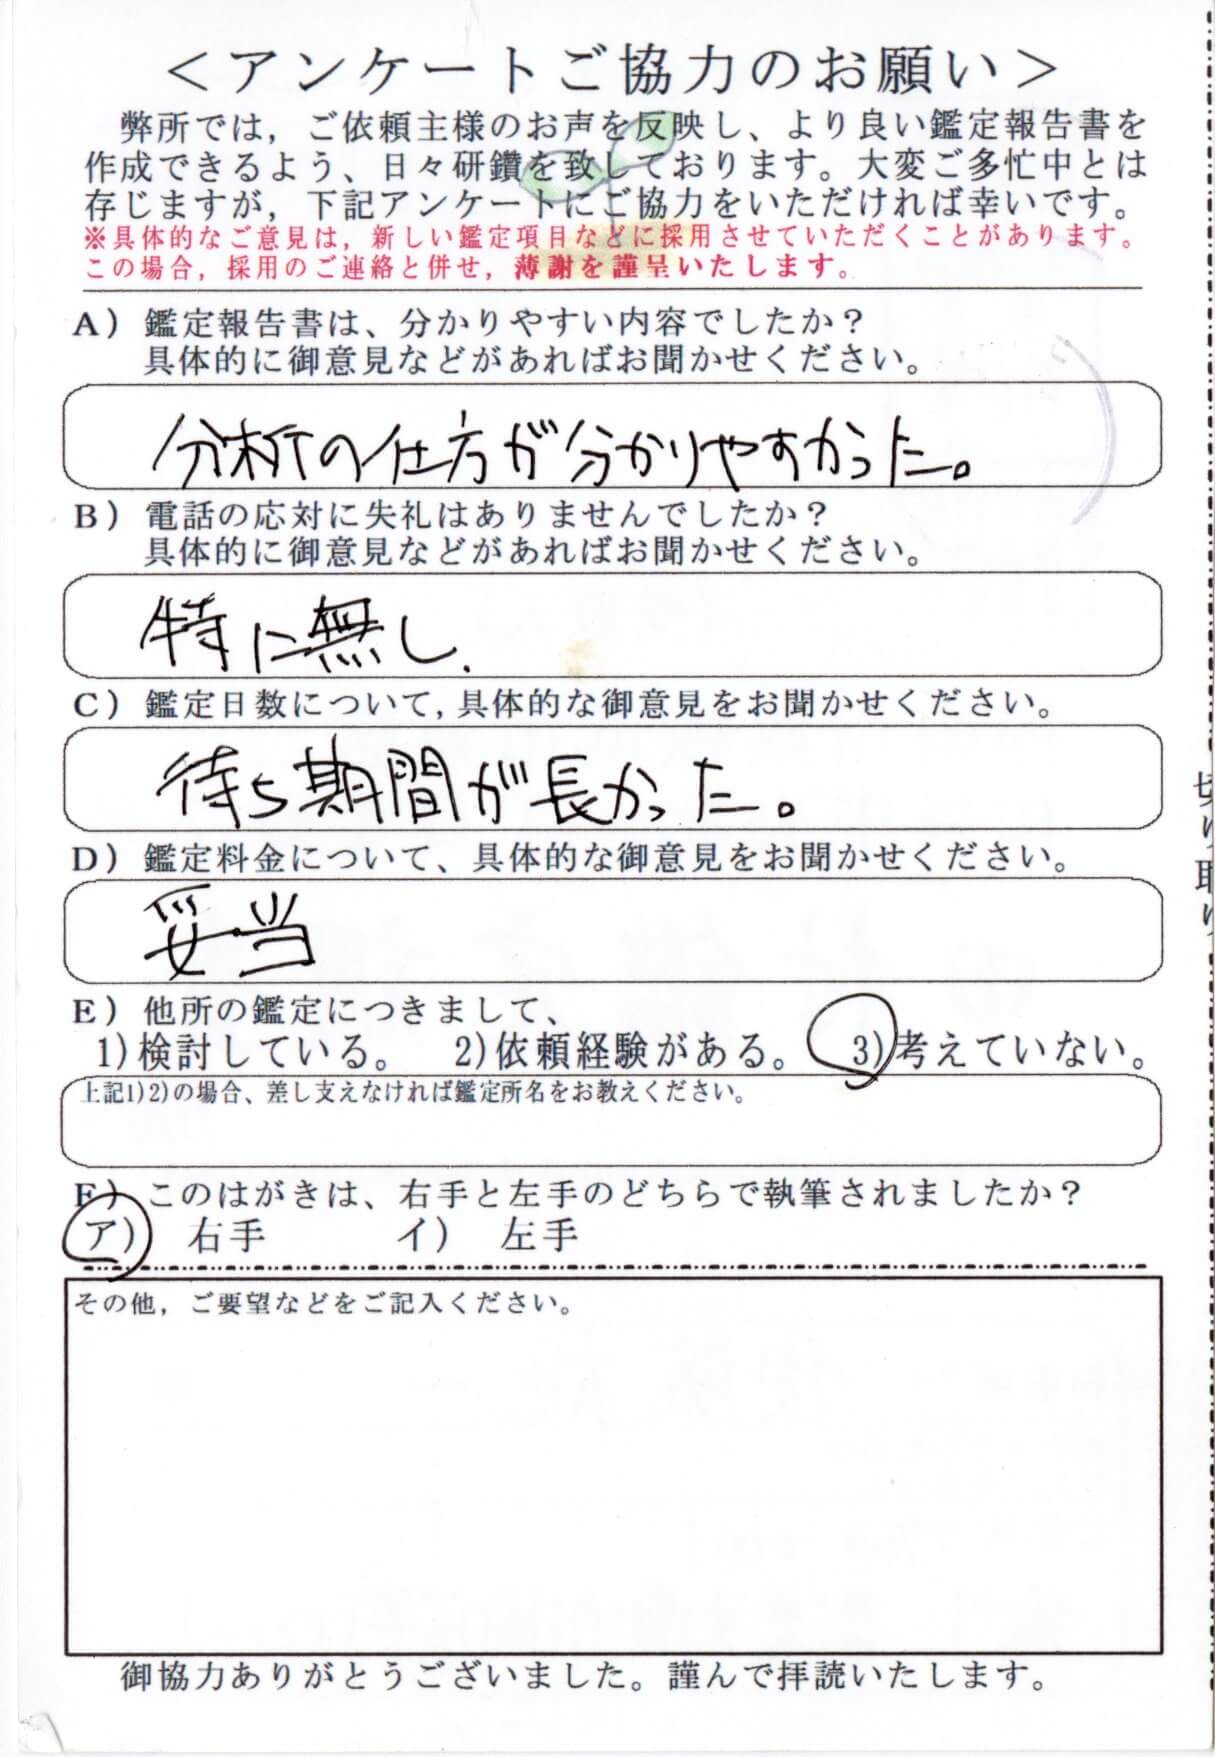 ＜アンケートご協力のお願い＞
弊所では，ご依頼主様のお声を反映し、より良い鑑定報告書を
作成できるよう、日々研鑽を致しております。大変ご多忙中とは
存じますが，下記アンケートにご協力をいただければ幸いです。
※具体的なご意見は，新しい鑑定項目などに採用させていただくことがあります。
この場合，採用のご連絡と併せ，薄謝を謹呈いたします。
A）鑑定報告書は、分かりやすい内容でしたか？
具体的に御意見などがあればお聞かせください。
分析の仕方が分かりやすかった。
B）電話の応対に失礼はありませんでしたか？
具体的に御意見などがあればお聞かせください。
特に無し.
C）鑑定日数について，具体的な御意見をお聞かせください。
待ち期間が長かった。
D）鑑定料金について、具体的な御意見をお聞かせください。
妥当
E）他所の鑑定につきまして、
1)検討している。 2)依頼経験がある。 3)考えていない。
上記1)2)の場合、差し支えなければ鑑定所名をお教えください。
F）このはがきは、右手と左手のどちらで執筆されましたか？
ア） 右手 イ） 左手
その他，ご要望などをご記入ください。
御協力ありがとうございました。謹んで拝読いたします。
切り取り